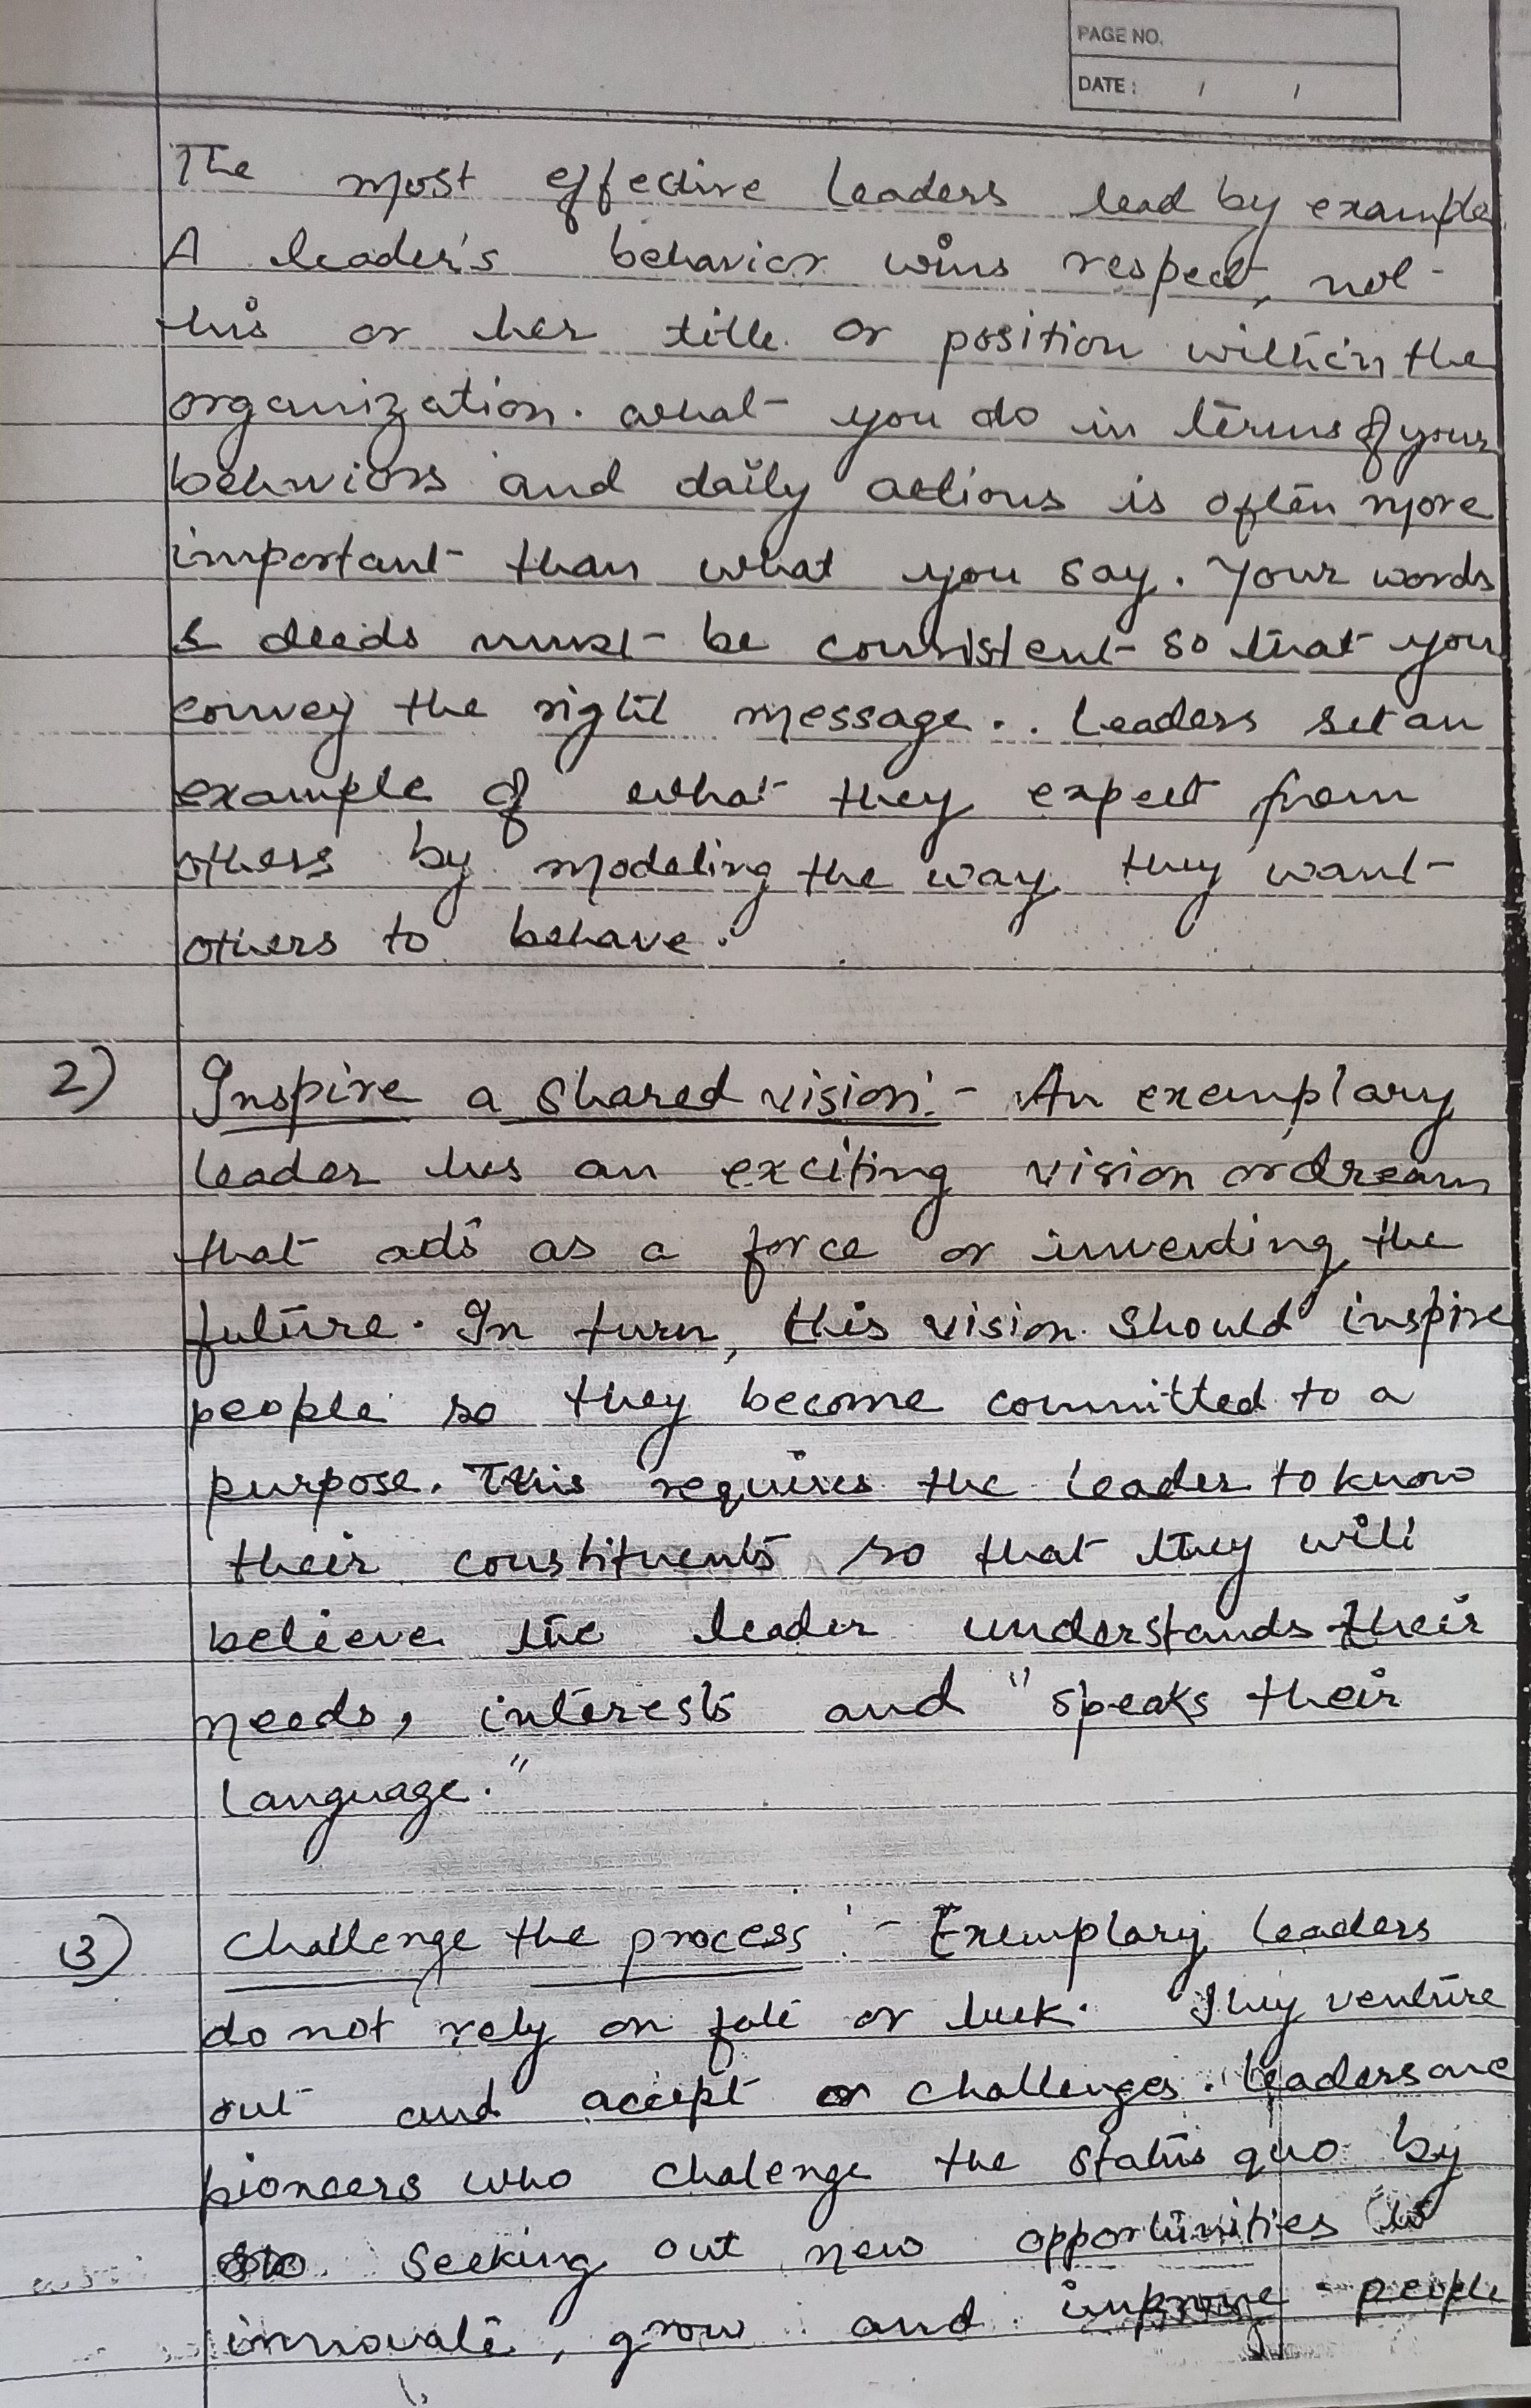 PAGE NO.
DATE : / /
The most effective leaders lead by example
A leader's behavior wins respect, not
this or her title or position within the
organization. what you do in terms of your
behaviors and daily actions is often more
important than what you say. Your words
& deeds must be consistent so that you
convey the right message. . Leaders set an
example of what they expect from
others by modeling the way they want
others to behave.
2) Inspire a shared vision :- An exemplary
leader has an exciting vision or dream
that acts as a force or inventing the
future. In turn, this vision should inspire
people so they become committed to a
purpose. This requires the leader to know
their constituents so that they will
believe the leader understands their
needs, interests and "speaks their
language."
3) Challenge the process :- Exemplary leaders
do not rely on fate or luck. They venture
out and accept challenges. Leaders are
pioneers who chalenge the status quo by
seeking out new opportunities to
innovate, grow and improve. people